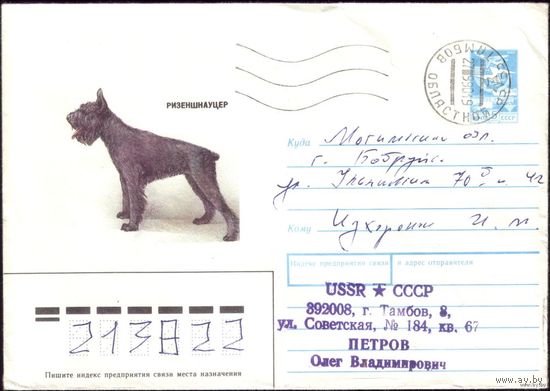 РИЗЕНШНАУЦЕР
СССР
Куда Могилевская обл.
г. Бобруйск
ул.
Кому
Индекс предприятия связи и адрес отправителя
USSR ★ СССР
392008, г. Тамбов, 8,
ул. Советская, № 184, кв. 67
ПЕТРОВ
Олег Владимирович
213822
Пишите индекс предприятия связи места назначения
ay.by